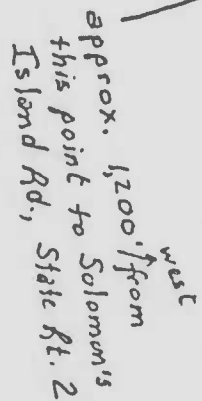 west
approx. 1,200' ↑ from
this point to Solomon's
Island Rd., State Rt. 2